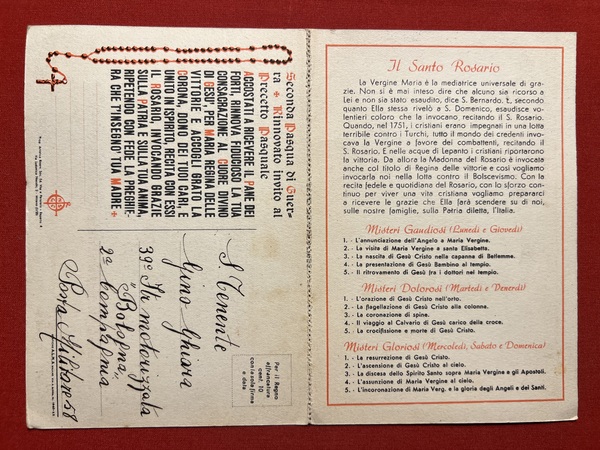 Seconda Pasqua di Guer-
ra + Rinnovato invito al
Precetto Pasquale
ACCOSTATI A RICEVERE IL PANE DEI
FORTI, RINNOVA FIDUCIOSO LA TUA
CONSACRAZIONE AL CUORE DIVINO
DI GESU', PER MARIA REGINA DELLE
VITTORIE E ACCOGLI LA BELLA
CORONA, DONO DEI TUOI CARI, E
UNITO IN ISPIRITO, RECITA CON ESSI
IL ROSARIO, INVOCANDO GRAZIE
SULLA PATRIA E SULLA TUA ANIMA,
RIPETENDO CON FEDE LA PREGHIE-
RA CHE T'INSEGNO' TUA MADRE +
S. Tenente
Gino Ghisra
39° Ftr motorizzata
"Bologna"
2a Compagnia
Posta Militare 58
Per il Regno
affrancatura
cent. 10
con la sola firma
e data
Il Santo Rosario
La Vergine Maria è la mediatrice universale di gra-
zie. Non si è mai inteso dire che alcuno sia ricorso a
Lei e non sia stato esaudito, dice S. Bernardo. E, secondo
quanto Ella stessa rivelò a S. Domenico, esaudisce vo-
lentieri coloro che la invocano recitando il S. Rosario.
Quando, nel 1751, i cristiani erano impegnati in una lotta
terribile contro i Turchi, tutto il mondo dei credenti invo-
cava la Vergine a favore dei combattenti, recitando il
S. Rosario. E nelle acque di Lepanto i cristiani riportarono
la vittoria. Da allora la Madonna del Rosario è invocata
anche col titolo di Regina delle vittorie e così vogliamo
invocarla noi nella lotta contro il Bolscevismo. Con la
recita fedele e quotidiana del Rosario, con lo sforzo conti-
nuo per viver una vita cristiana vogliamo prepararci
a ricevere le grazie che Ella farà scendere su di noi,
sulle nostre famiglie, sulla Patria diletta, l'Italia.
Misteri Gaudiosi (Lunedì e Giovedì)
1. - L'annunciazione dell'Angelo a Maria Vergine.
2. - La visita di Maria Vergine a santa Elisabetta.
3. - La nascita di Gesù Cristo nella capanna di Betlemme.
4. - La presentazione di Gesù Bambino al tempio.
5. - Il ritrovamento di Gesù fra i dottori nel tempio.
Misteri Dolorosi (Martedì e Venerdì)
1. - L'orazione di Gesù Cristo nell'orto.
2. - La flagellazione di Gesù Cristo alla colonna.
3. - La coronazione di spine.
4. - Il viaggio al Calvario di Gesù carico della croce.
5. - La crocifissione e morte di Gesù Cristo.
Misteri Gloriosi (Mercoledì, Sabato e Domenica)
1. - La resurrezione di Gesù Cristo.
2. - L'ascensione di Gesù Cristo al cielo.
3. - La discesa dello Spirito Santo sopra Maria Vergine e gli Apostoli.
4. - L'assunzione di Maria Vergine al cielo.
5. - L'incoronazione di Maria Verg. e la gloria degli Angeli e dei Santi.